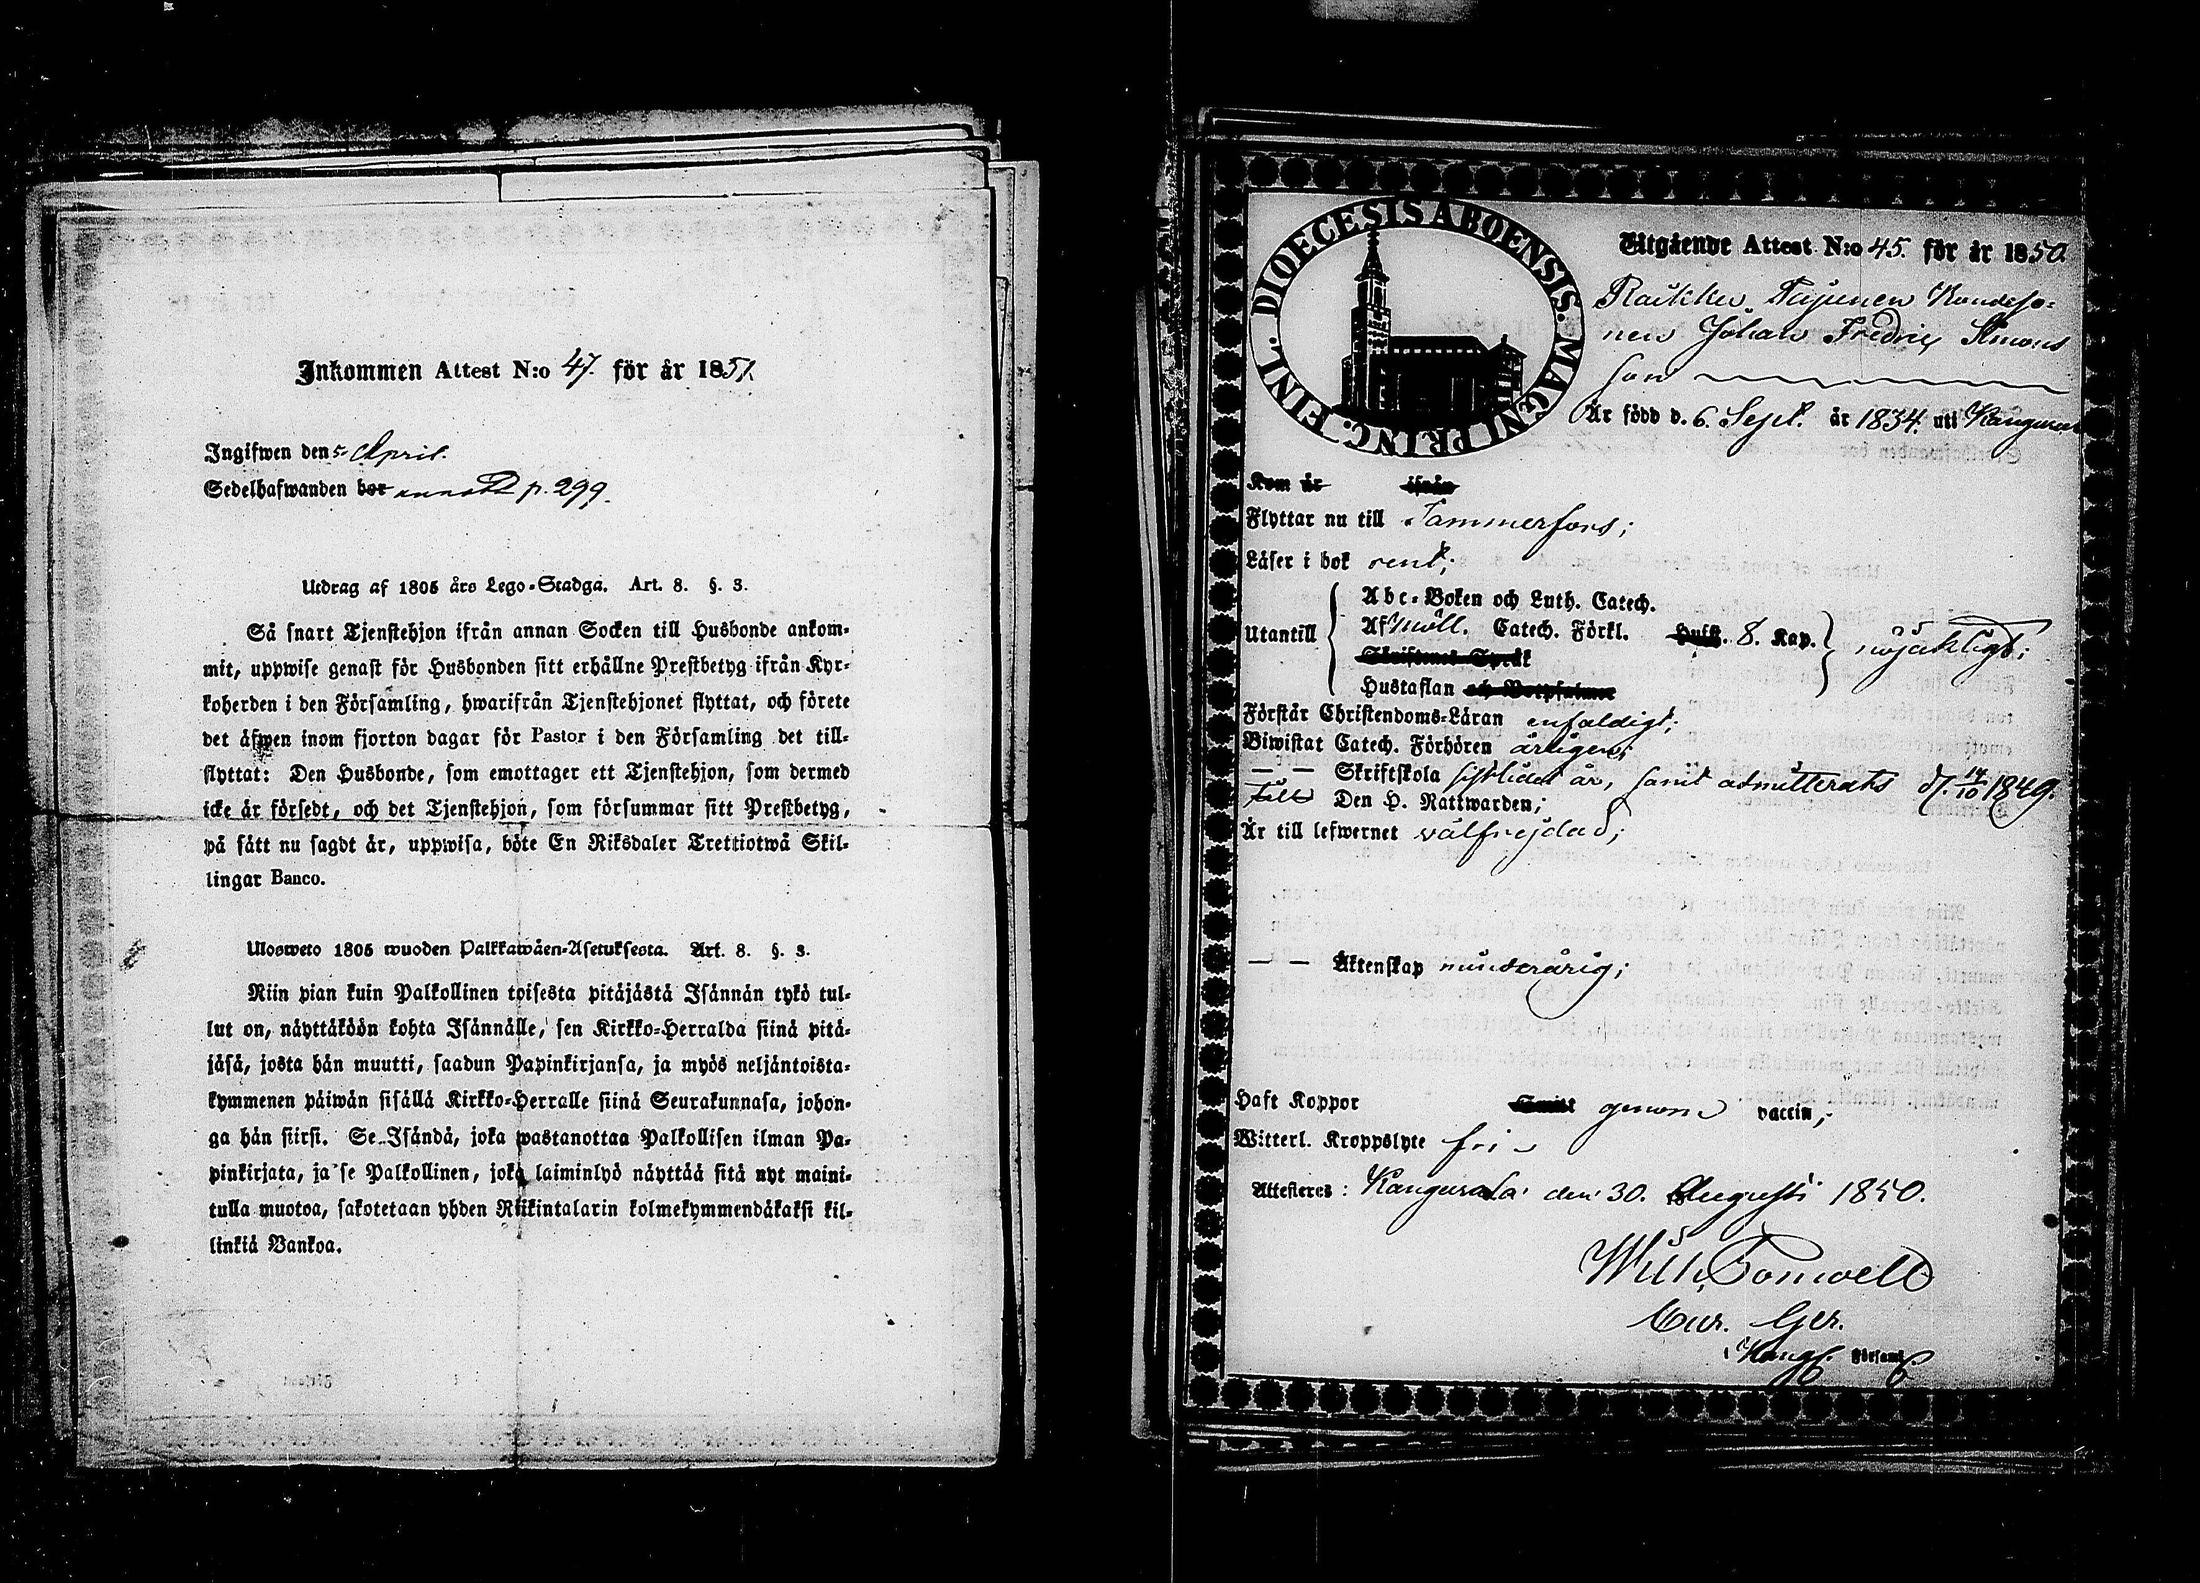 Inkommen Attest N:o 47. för år 1851.
Ingifwen den 5 April.
Sedelhafwanden bor p. 299.
Utdrag af 1805 års Lego-Stadga. Art. 8. §. 3.
Så snart Tjenstehjon ifrån annan Socken till Husbonde ankom-
mit, uppwise genast för Husbonden sitt erhållne Prestbetyg ifrån Kyr-
koherden i den Församling, hwarifrån Tjenstehjonet flyttat, och förete
det äfwen inom fjorton dagar för Pastor i den Församling det till-
flyttat: Den Husbonde, som emottager ett Tjenstehjon, som dermed
icke är försedt, och det Tjenstehjon, som försummar sitt Prestbetyg,
på sätt nu sagdt är, uppwisa, böte En Riksdaler Trettiotwå Skil-
lingar Banco.
Ulosweto 1805 wuoden Palkkawäen-Asetuksesta. Art. 8. §. 3.
Niin pian kuin Palkollinen toisesta pitäjästä Isännän tykö tul-
lut on, näyttäköön kohta Isännälle, sen Kirkko-Herralda siinä pitä-
jäsä, josta hän muutti, saadun Papinkirjansa, ja myös neljäntoista-
kymmenen päiwän sisällä Kirkko-Herralle siinä Seurakunnasa, johon-
ga hän siirsi. Se Isändä, joka wastanottaa Palkollisen ilman Pa-
pinkirjata, ja se Palkollinen, joka laiminlyö näyttää sitä nyt maini-
tulla muotoa, sakotetaan yhden Riikintalarin kolmekymmendäkaksi kil-
linkiä Bankoa.
DIOECESIS ABOENSIS. MAGNI PRINC. FINL.
Utgående Attest N:o 45. för år 1850.
Raikku Tujunen
Johan Fredric Simons
son
Är född d. 6 Sept. år 1834. uti Kangasala
Kom år ifrån
Flyttar nu till Tammerfors;
Läser i bok rent;
Abc-Boken och Luth. Catech.
Utantill Af Möll. Catech. Förkl. Hufst. 8. Kap. nöjaktigt;
Christenes Språk
Hustaflan och Botpsalmer
Förstår Christendoms-Läran enfaldigt;
Biwistat Catech. Förhören årligen;
— — Skriftskola sistlidet år, samt admitterats d. 14/10 1849.
till Den H. Nattwarden;
Är till lefwernet välfrejdad;
— — Äktenskap minderårig;
Haft Koppor Samt genom vaccin;
Witterl. Kroppslyte fri
Attesteres: Kangasala den 30. Augusti 1850.
Wilh. Tornwell
Cur. Ger.
i Kangs. Församl.